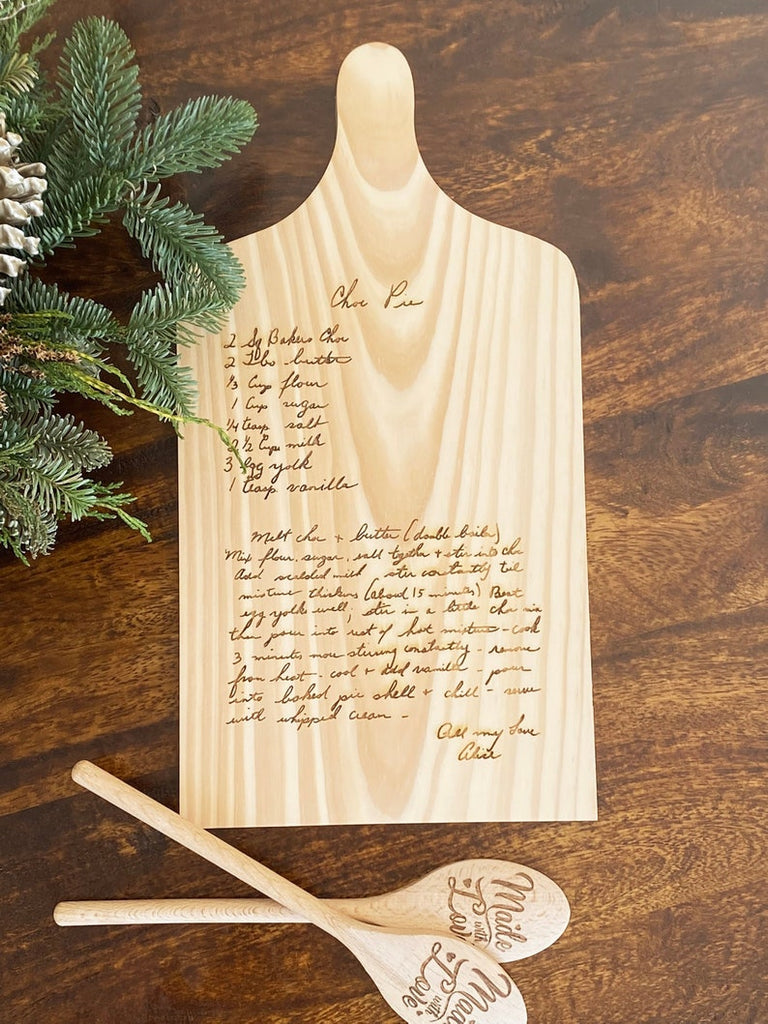 Choc Pie
2 Sq Bakers Choc
2 Tbs butter
1/3 Cup flour
1 Cup sugar
1/4 teasp salt
2 1/2 Cups milk
3 egg yolk
1 teasp vanilla
Melt choc + butter (double boiler)
Mix flour, sugar, salt together + stir into cho
Add scalded milk stir constantly til
mixture thickens (about 15 minutes) Beat
egg yolks well; stir in a little choc mix
then pour into rest of hot mixture - cook
3 minutes more stirring constantly - remove
from heat - cool + add vanilla - pour
into baked pie shell + chill - serve
with whipped cream -
All my love
Alice
Made
with
Love
Made
with
Love